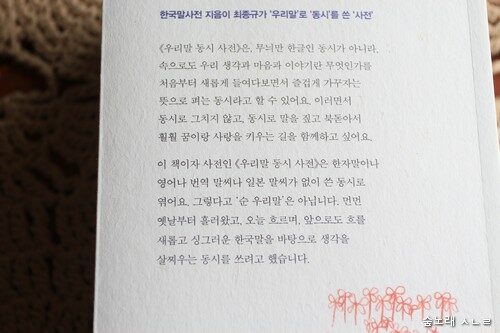 한국말사전 지음이 최종규가 '우리말'로 '동시'를 쓴 '사전'
《우리말 동시 사전》은, 무늬만 한글인 동시가 아니라,
속으로도 우리 생각과 마음과 이야기란 무엇인가를
처음부터 새롭게 들여다보면서 즐겁게 가꾸자는
뜻으로 펴는 동시라고 할 수 있어요. 이러면서
동시로 그치지 않고, 동시로 말을 짚고 북돋아서
훨훨 꿈이랑 사랑을 키우는 길을 함께하고 싶어요.
이 책이자 사전인 《우리말 동시 사전》은 한자말이나
영어나 번역 말씨나 일본 말씨가 없이 쓴 동시로
엮어요. 그렇다고 '순 우리말'은 아닙니다. 먼먼
옛날부터 흘러왔고, 오늘 흐르며, 앞으로도 흐를
새롭고 싱그러운 한국말을 바탕으로 생각을
살찌우는 동시를 쓰려고 했습니다.
숲노래 ㅅㄴㄹ